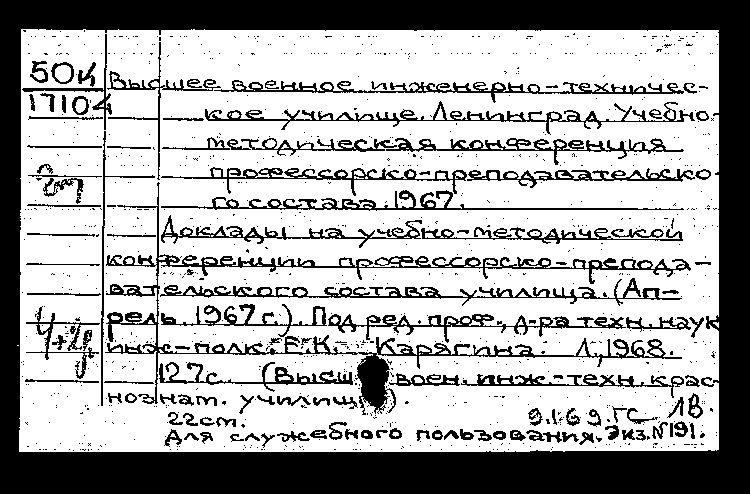 50к Высшее военное инженерно-техничес-
17104
кое училище. Ленинград. Учебно-
методическая конференция
профессорско-преподавательско-
го состава. 1967.
Доклады на учебно-методической
конференции профессорско-препода-
вательского состава училища. (Ап-
рель. 1967 г.). Под ред. проф., д-ра техн. наук
инж-полк. Е.К. Карягина. Л., 1968.
127с. (Высш воен. инж.-техн. крас
нознам. училищ ).
22см. 9.1.69.ГС 1В.
Для служебного пользования. Экз.№191.